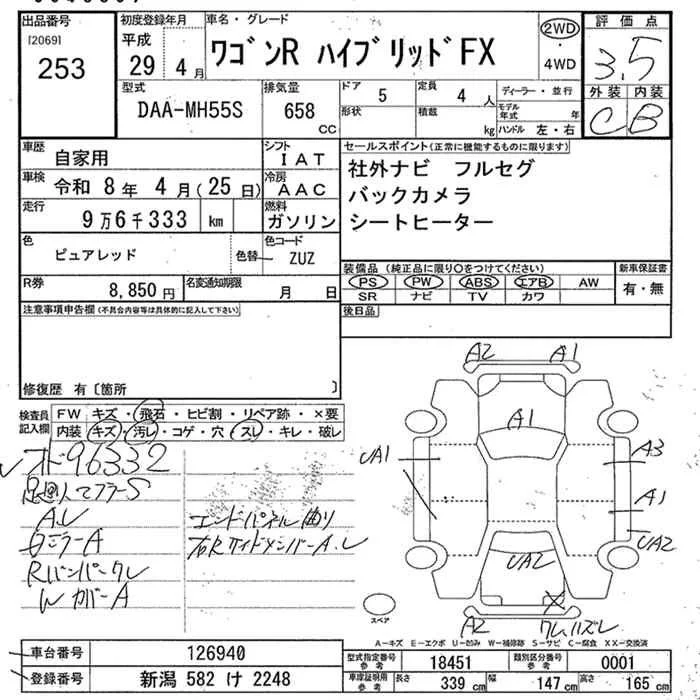 出品番号
[2069]
253
初度登録年月
平成
29 4月
車名・グレード
ワゴンR ハイブリッドFX
2WD
・
4WD
評価点
3.5
外装 内装
C B
型式
DAA-MH55S
排気量
658 CC
ドア 5
形状
定員 4 人
積載 kg
ディーラー・並行
モデル年式 年
ハンドル 左・右
車歴 自家用
シフト IAT
車検 令和 8年 4月(25日)
冷房 AAC
走行 9万6千333 km
燃料 ガソリン
色 ピュアレッド
色替
色コード ZUZ
R券 8,850円
名変通知期限 月 日
セールスポイント(正常に機能するものに限ります)
社外ナビ フルセグ
バックカメラ
シートヒーター
装備品 (純正品に限り○をつけてください)
PS PW ABS エアB AW
SR ナビ TV カワ
新車保証書
有・無
後日品
注意事項申告欄(不具合内容等は具体的に記入して下さい)
修復歴 有〔箇所 〕
検査員記入欄
FW キズ・飛石・ヒビ割・リペア跡・×要
内装 キズ・汚レ・コゲ・穴・スレ・キレ・破レ
96332
Aレ
ミラーA
Rバンパークレ
W カバーA
エンドパネル曲り
右RサイドメンバーA.レ
A2 A1
A1
UA1
A3
A1
UA2
UA2
A2
スペア
A-キズ E-エクボ U-凹み W-補修跡 S-サビ C-腐食 XX-交換済
車台番号 126940
登録番号 新潟 582 け 2248
型式指定番号 参考 18451
類別区分番号 参考 0001
車庫証明用 参考 長さ 339cm 幅 147cm 高さ 165cm